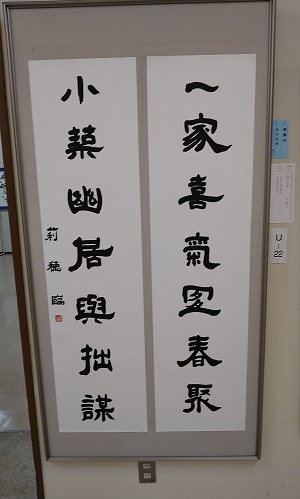 一家喜氣因春聚
小築幽居與拙謀
莉穂臨
U-22